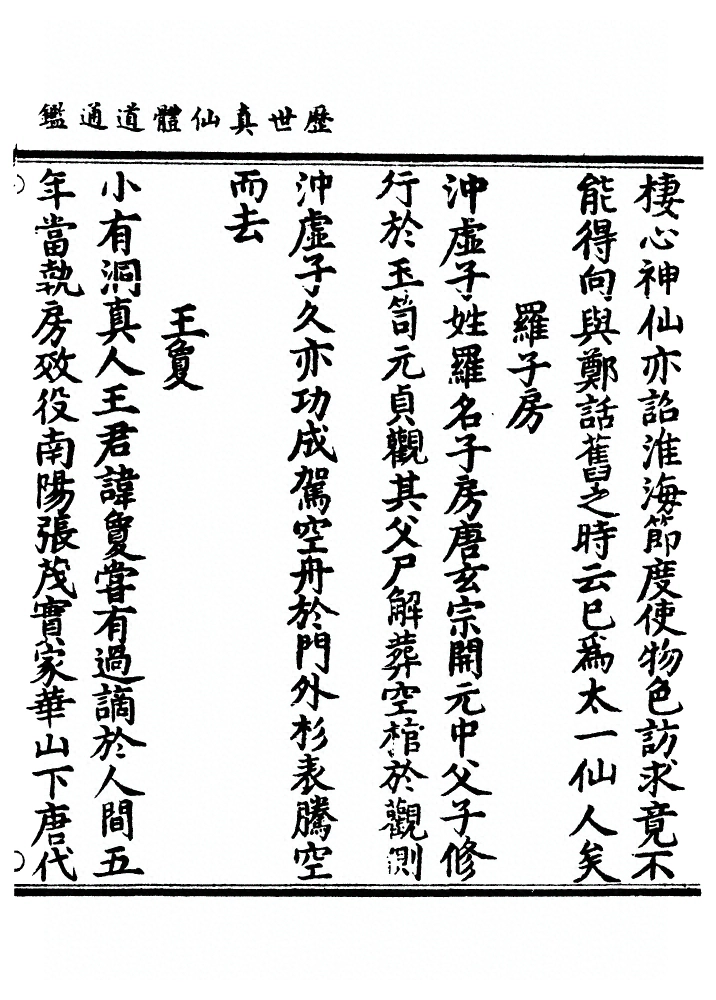 歷世真仙體道通鑑
棲心神仙亦詔淮海節度使物色訪求竟不
能得向與鄭話舊之時云已爲太一仙人矣
羅子房
沖虛子姓羅名子房唐玄宗開元中父子修
行於玉笥元貞觀其父尸解葬空棺於觀側
沖虛子久亦功成駕空舟於門外杉表騰空
而去
王夐
小有洞真人王君諱夐嘗有過謫於人間五
年當執房效役南陽張茂實家華山下唐代